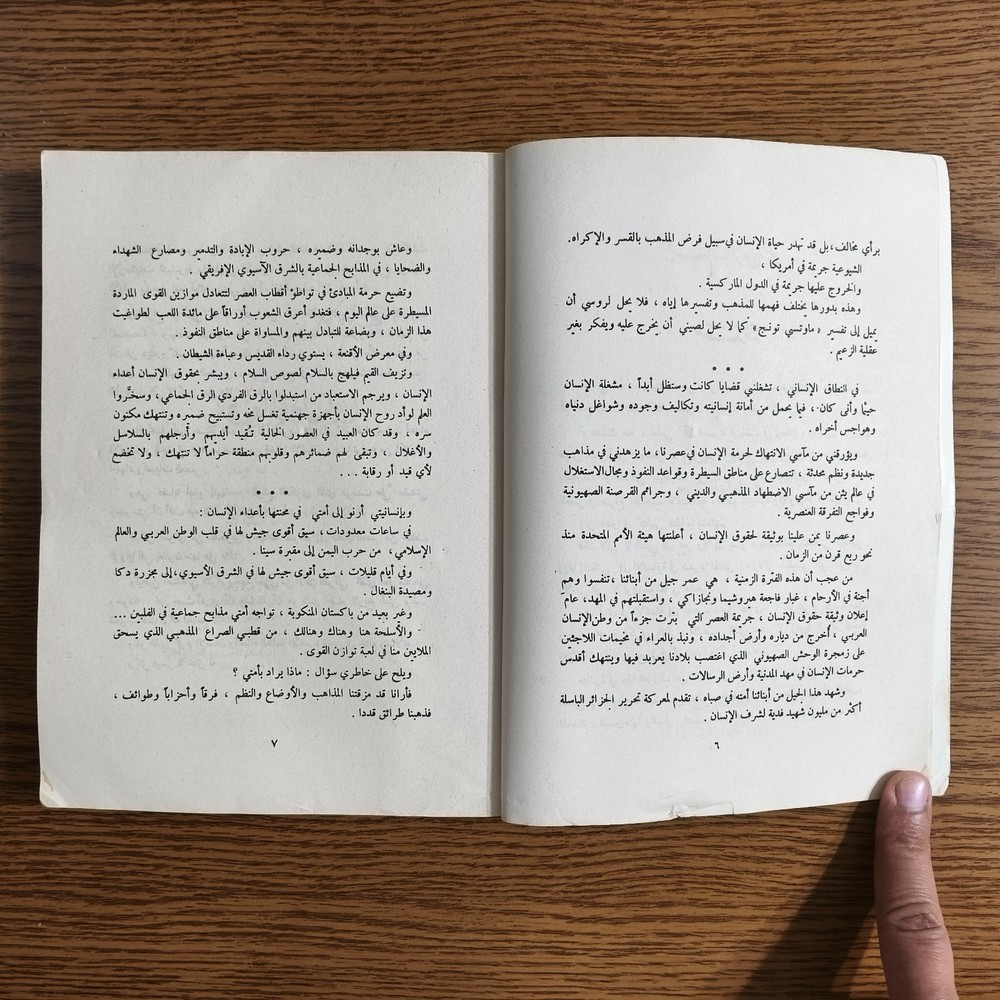 برأي مخالف، بل قد تهدر حياة الإنسان في سبيل فرض المذهب بالقسر والإكراه.
الشيوعية جريمة في أمريكا ،
والخروج عليها جريمة في الدول الماركسية .
وهذه بدورها يختلف فهمها للمذهب وتفسيرها إياه ، فلا يحل لروسي أن
يميل إلى تفسير «ماوتسي تونج» كما لا يحل لصيني أن يخرج عليه ويفكر بغير
عقلية الزعيم .
• • •
في النطاق الإنساني ، تشغلني قضايا كانت وستظل أبداً ، مشغلة الإنسان
حيثما وأنى كان ، فيما يحمل من أمانة إنسانيته وتكاليف وجوده وشواغل دنياه
وهواجس أخراه .
ويؤرقني من مآسي الانتهاك لحرمة الإنسان في عصرنا، ما يزهدني في مذاهب
جديدة ونظم محدثة ، تتصارع على مناطق السيطرة وقواعد النفوذ ومجال الاستغلال
في عالم يئن من مآسي الاضطهاد المذهبي والديني ، وجرائم القرصنة الصهيونية
وفواجع التفرقة العنصرية .
وعصرنا يمن علينا بوثيقة لحقوق الإنسان ، أعلنتها هيئة الأمم المتحدة منذ
نحو ربع قرن من الزمان .
من عجب أن هذه الفترة الزمنية ، هي عمر جيل من أبنائنا ، تنفسوا وهم
أجنة في الأرحام ، غبار فاجعة هيروشيما ونجازاكي ، واستقبلتهم في المهد، عام
إعلان وثيقة حقوق الإنسان ، جريمة العصر التي بترت جزءاً من وطن الإنسان
العربي ، أخرج من دياره وأرض أجداده ، ونبذ بالعراء في مخيمات اللاجئين
على زمجرة الوحش الصهيوني الذي اغتصب بلادنا يعربد فيها وينتهك أقدس
حرمات الإنسان في مهد المدنية وأرض الرسالات .
وشهد هذا الجيل من أبنائنا أمته في صباه ، تقدم لمعركة تحرير الجزائر الباسلة
أكثر من مليون شهيد فدية لشرف الإنسان .
٦
وعاش بوجدانه وضميره ، حروب الإبادة والتدمير ومصارع الشهداء
والضحايا ، في المذابح الجماعية بالشرق الآسيوي الإفريقي .
وتضيع حرمة المبادئ في تواطؤ أقطاب العصر لتتعادل موازين القوى الماردة
المسيطرة على عالم اليوم ، فتغدو أعرق الشعوب أوراقاً على مائدة اللعب لطواغيت
هذا الزمان ، وبضاعة للتبادل بينهم والمساواة على مناطق النفوذ .
وفي معرض الأقنعة ، يستوي رداء القديس وعباءة الشيطان .
وتزيف القيم فيلهج بالسلام لصوص السلام ، ويبشر بحقوق الإنسان أعداء
الإنسان ، ويرجم الاستعباد من استبدلوا بالرق الفردي الرق الجماعي ، وسخَّروا
العلم لوأد روح الإنسان بأجهزة جهنمية تغسل مخه وتستبيح ضميره وتنتهك مكنون
سره ، وقد كان العبيد في العصور الخالية تُقيد أيديهم وأرجلهم بالسلاسل
والأغلال ، وتبقى لهم ضمائرهم وقلوبهم منطقة حراماً لا تنتهك ، ولا تخضع
لأي قيد أو رقابة . . .
• • •
وبإنسانيتي أرنو إلى أمتي في محنتها بأعداء الإنسان :
في ساعات معدودات ، سيق أقوى جيش لها في قلب الوطن العربي والعالم
الإسلامي ، من حرب اليمن إلى مقبرة سينا .
وفي أيام قليلات ، سيق أقوى جيش لها في الشرق الأسيوي، إلى مجزرة دكا
ومصيدة البنغال .
وغير بعيد من باكستان المنكوبة ، تواجه أمتي مذابح جماعية في الفلبين ...
والأسلحة هنا وهناك وهنالك ، من قطبي الصراع المذهبي الذي يسحق
الملايين منا في لعبة توازن القوى .
ويلح على خاطري سؤال : ماذا يراد بأمتي ؟
فأرانا قد مزقتنا المذاهب والأوضاع والنظم ، فرقاً وأحزاباً وطوائف ،
فذهبنا طرائق قددا .
٧